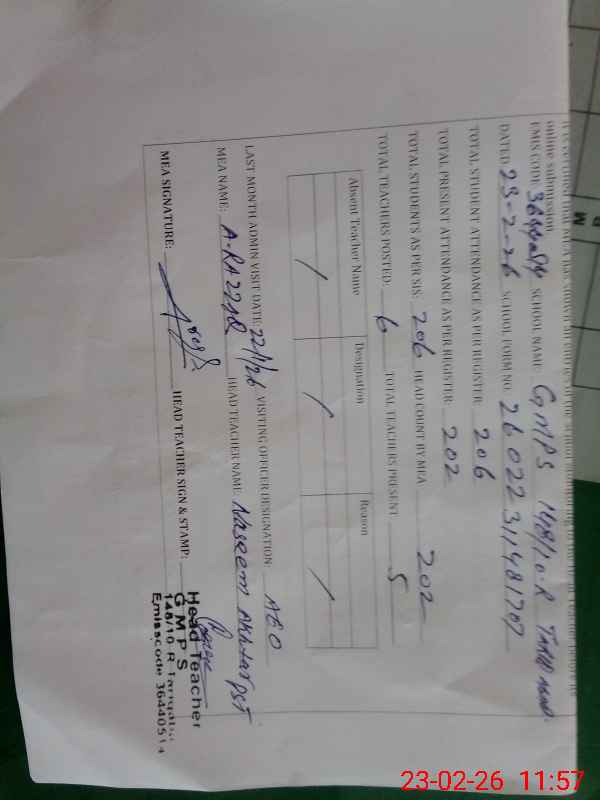 online submission.
EMIS CODE: SCHOOL NAME: GMPS 148/10-R
DATED 23-2-26 SCHOOL FORM NO.
TOTAL STUDENT ATTENDANCE AS PER REGISTER: 206
TOTAL PRESENT ATTENDANCE AS PER REGISTER: 202
TOTAL STUDENTS AS PER SIS: 206 HEAD COUNT BY MEA 202
TOTAL TEACHERS POSTED: 6 TOTAL TEACHERS PRESENT 5
Absent Teacher Name Designation Reason
/ / /
LAST MONTH ADMIN VISIT DATE: 22/1/26 VISITING OFFICER DESIGNATION: AEO
MEA NAME: HEAD TEACHER NAME: Naseem Akhtar PST
MEA SIGNATURE: HEAD TEACHER SIGN & STAMP:
Head Teacher
G M P S
148/10-R
Emiscode 36440514
23-02-26 11:57